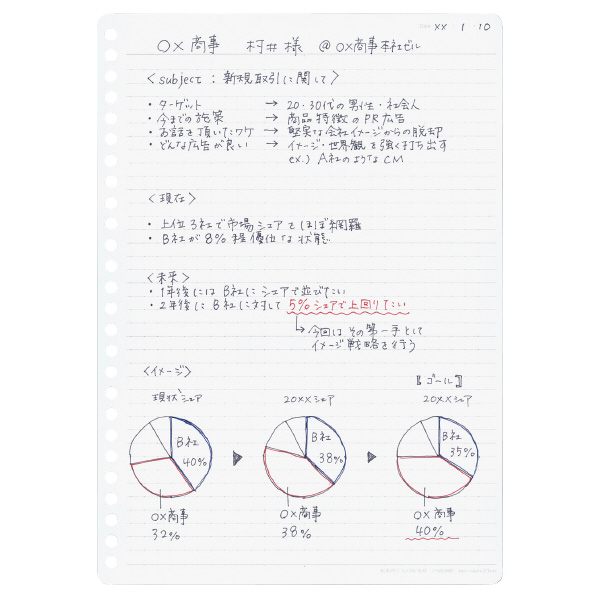 XX 1 10
○×商事 村井様 @○×商事本社ビル
<subject:新規取引に関して>
・ターゲット → 20・30代の男性・社会人
・今までの施策 → 商品特徴のPR広告
・お話を頂いたワケ → 堅実な会社イメージからの脱却
・どんな広告が良い → イメージ・世界観を強く打ち出す
ex.) A社のようなCM
<現在>
・上位3社で市場シェアをほぼ網羅
・B社が8%程優位な状態
<未来>
・1年後にはB社にシェアで並びたい
・2年後にB社に対して5%シェアで上回りたい
今回はその第一手として
イメージ戦略を行う
<イメージ>
【ゴール】
現状シェア 20××シェア 20××シェア
B社 B社 B社
40% 38% 35%
○×商事 ○×商事 ○×商事
32% 38% 40%